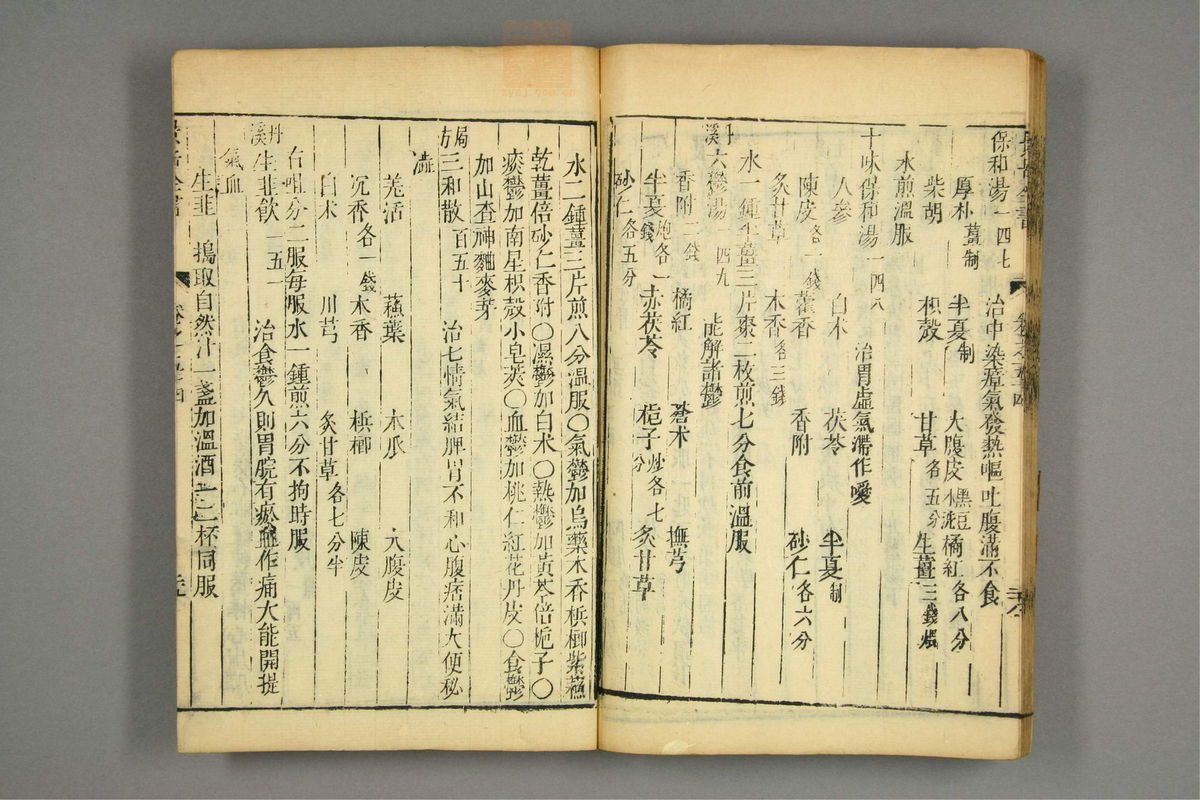 保和湯一四七 治中染瘴氣發熱嘔吐腹滿不食
厚朴薑制 半夏制 大腹皮黑豆水洗 橘紅各八分
柴胡 枳殼 甘草各五分 生薑三錢煨
水煎溫服
十味保和湯一四八 治胃虛氣滯作噯
人參 白朮 茯苓 半夏制
陳皮各一錢 藿香 香附 砂仁各六分
炙甘草 木香各三錢
水一鍾生薑三片棗二枚煎七分食前溫服
丹溪六鬱湯一四九 能解諸鬱
香附二錢 橘紅 蒼朮 撫芎
半夏炮各一錢 赤茯苓 梔子炒各七分 炙甘草
砂仁各五分
水二鍾薑三片煎八分溫服〇氣鬱加烏藥木香梹榔紫蘇
乾薑倍砂仁香附〇濕鬱加白朮〇熱鬱加黃芩倍梔子〇
痰鬱加南星枳殼小皂莢〇血鬱加桃仁紅花丹皮〇食鬱
加山查神麯麥芽
局方三和散百五十 治七情氣結脾胃不和心腹痞滿大便秘
澁
羌活 蘇葉 木瓜 大腹皮
沉香各一錢 木香 梹榔 陳皮
白朮 川芎 炙甘草各七分半
右㕮咀分二服每服水一鍾煎六分不拘時服
丹溪生韭飲一五一 治食鬱久則胃脘有瘀血作痛大能開提
氣血
生韭 搗取自然汁一盞加溫酒一二杯同服